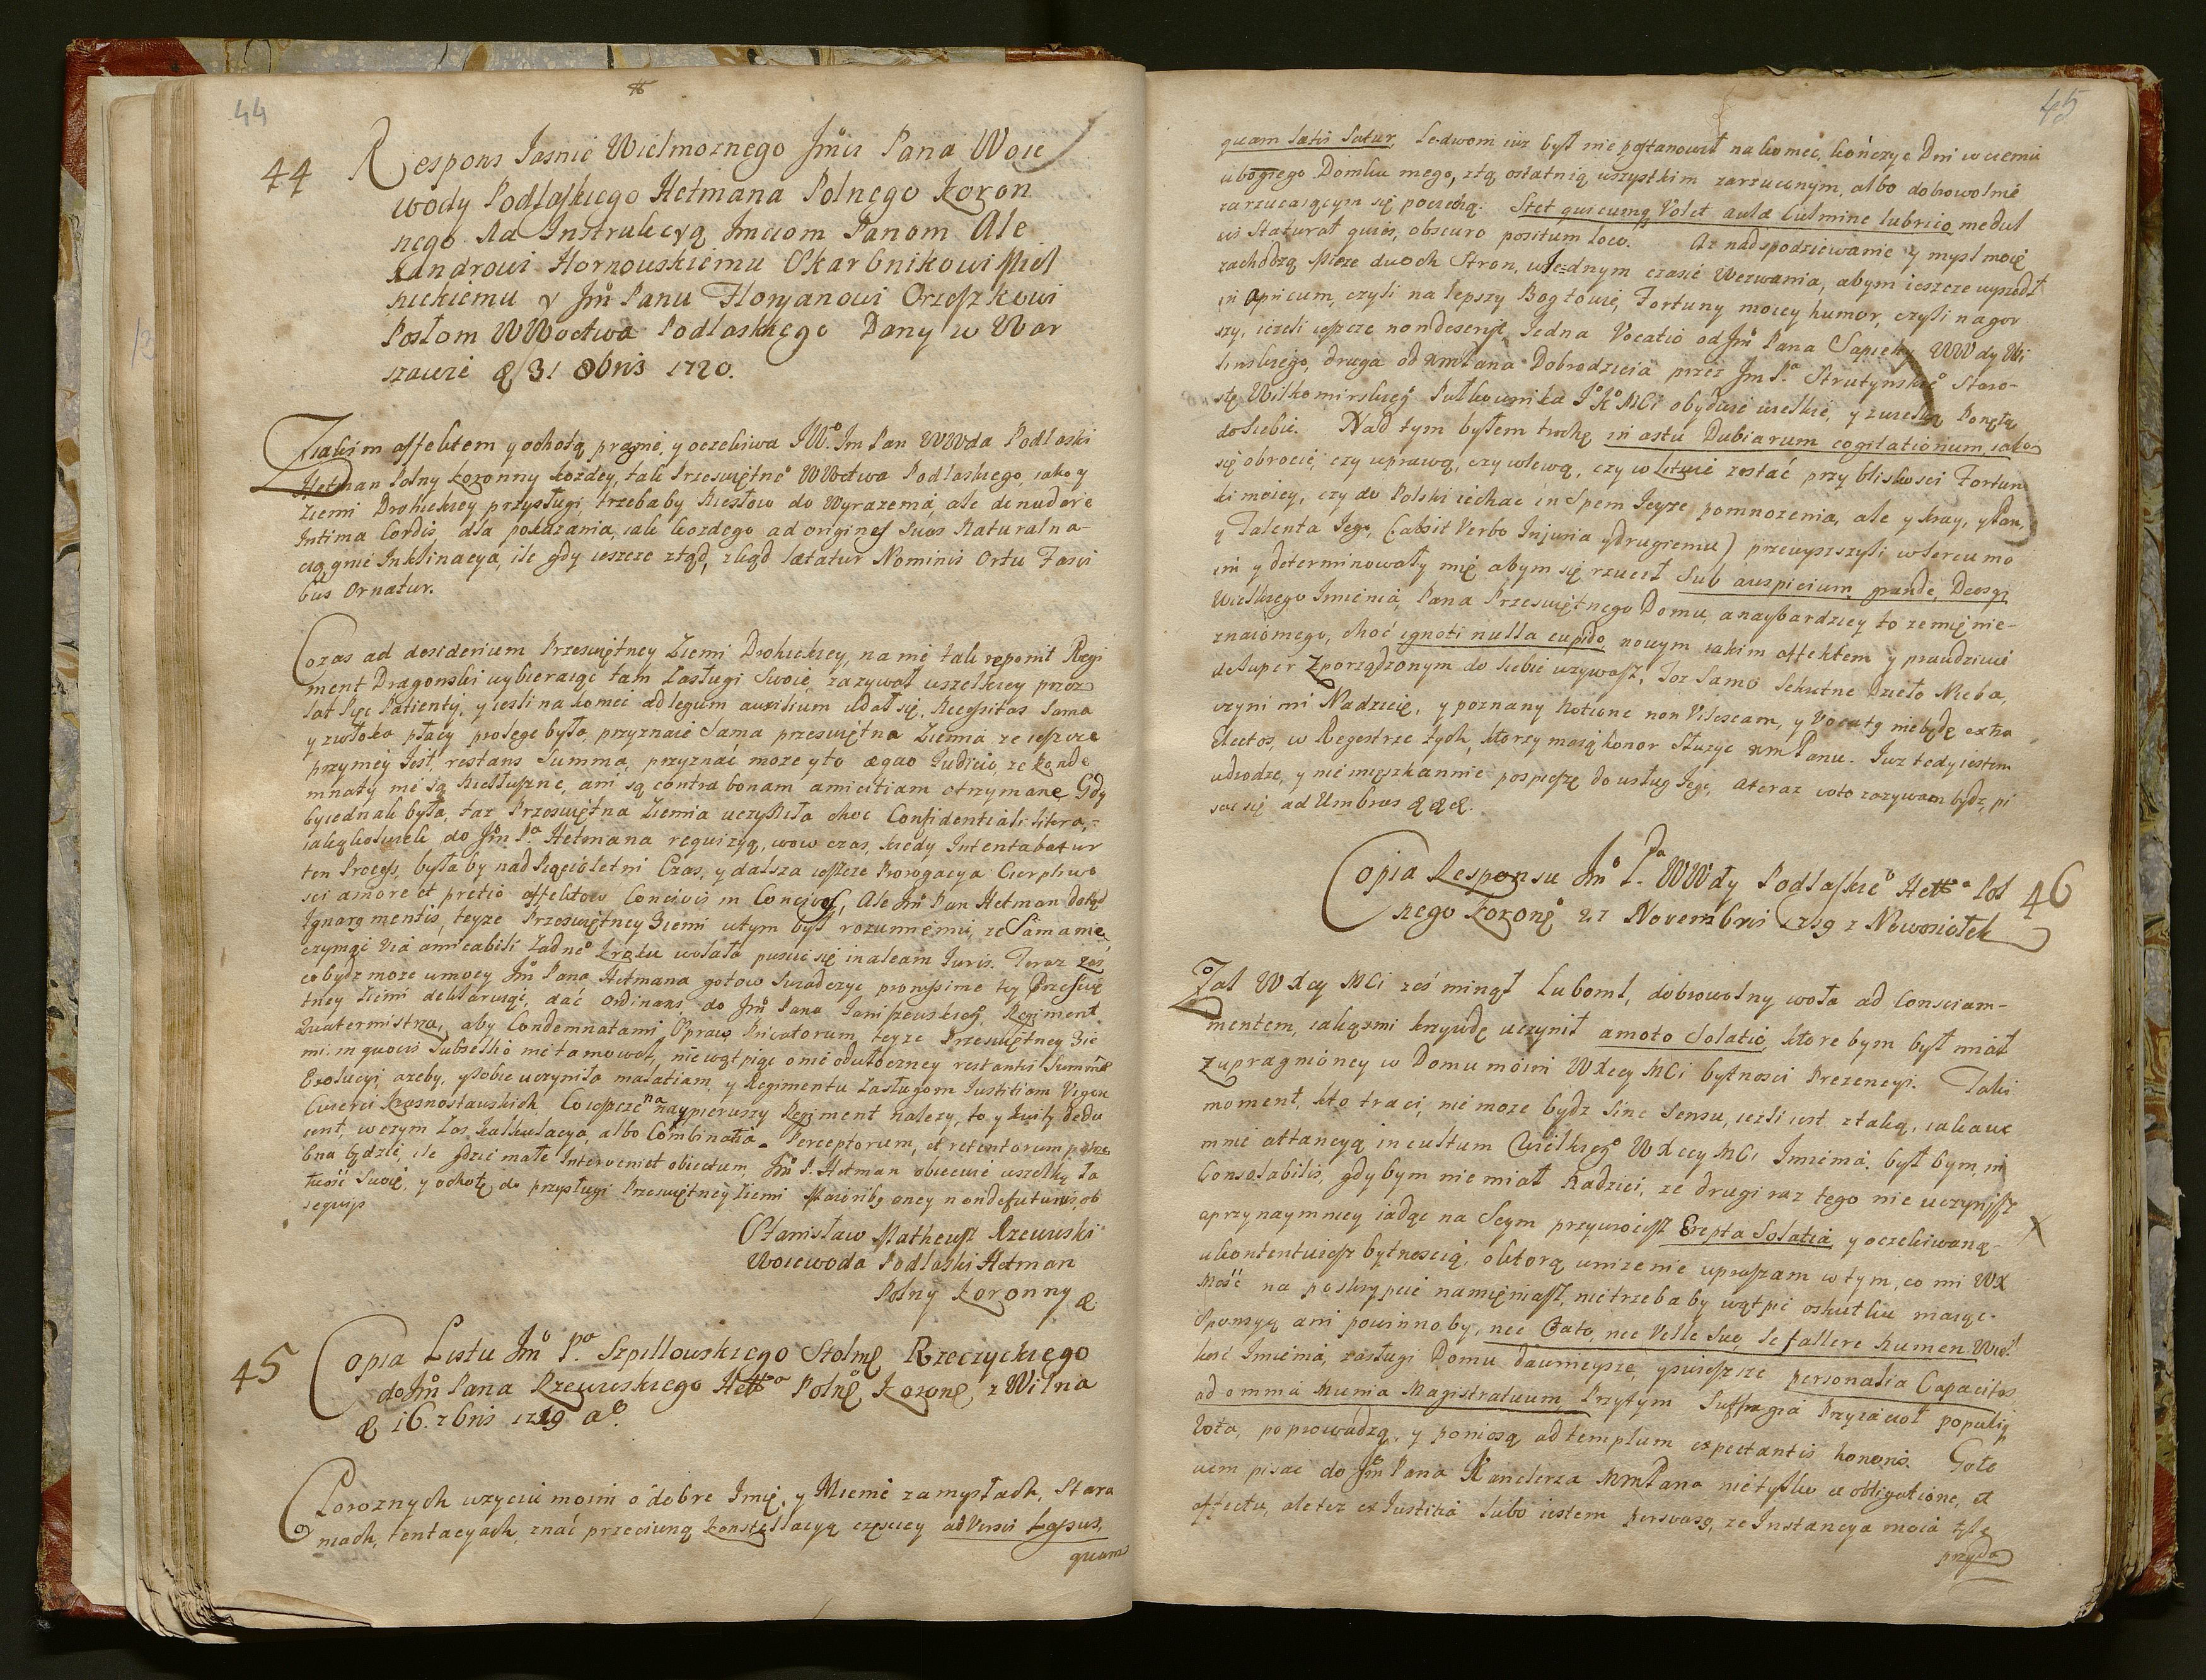 44
44 Respons Jasnie Wielmoznego Jmci Pana Woie
wody Podlaskiego Hetmana Polnego Koron
nego Na Instrukcyą Jmciom Panom Ale
xandrowi Hornowskiemu Skarbnikowi Miel
nickiemu y Jm Panu Floryanowi Orzeszkowi
Posłom WWodtwa Podlaskiego Dany w War
szawie 31 8bris 1720.
Ziakim affektem y ochotą pragnie, y oczekiwa JWo Jm Pan WWda Podlaski
Hetman Polny Koronny kozdey, tak Przeswiętne WWdtwa Podlaskiego, iako y
Ziemi Drohickiey przysługi, trzebaby Niesłow do Wyrazenia, ale denudare
Intima Cordis, dla pokazania, iak kozdego ad origines suas Naturalna-
ciągnie Inklinacya, ile gdy ieszcze ztąd, zkąd lætatur Nominis Ortu Fasci
bus Ornatur.
Coras ad desiderium Przeswiętney Ziemi Drohickiey, na nie tak reponit Regi
ment Dragonski wybieraiąc tam Zasługi Swoie, zazywał wszelkiey przez
lat Pięc Patientÿ, y iesli na koniec ad legum auxilium udał się, Necessitas sama
y zwłoka płacy pro lege była, przyznaie Sama przeswiętna Ziemia ze ieszcze
przy niey Jest, restans Summa, przyznać moze y to æquo Judicio, ze konde
mnaty nie są Niesłuszne, ani są contra bonam amicitiam otrzymane Gdy
by iednak była, taz Przeswiętna Ziemia uczyniła choc Confidentiali litera,
iakązkolwiek do Jm Pa Hetmana requizyą, wow czas, kiedy Intentabatur
ten Process, byłaby nad Pięcioletni Czas, y dalsza ieszcze Prorogacya Cierpliwo
sci amore et pretio affektow Concivis in Concives, Ale Jm Pan Hetman dotąd
Ignarg mentis, teyze Przeswiętney Ziemi w tym był rozumieniu, ze Sama nie
czyniąc via amicabili zadne kroku wolała puscic się in aleam Juris. Teraz zas
co bydz moze w mocy Jm Pana Hetmana gotow swiadczyc pronissime tey Przeswię
tney Ziemi deklaruiąc, dać ordinans do Jm Pana Janiszewskieg, Regiment
Quatermistrza, aby Condemnatami Spraw Privatorum teyze Przeswiętney Zie
mi in quovis Subsellio nie tamował, nie wątpiąc o nie odwłoczney restantis Summæ
Exolucyi, azeby, y sobie uczyniła y Regimentu Zasługom Justitiam Vigore
Cwierci Krasnostawskich, Co ieszcze na naypierwszy Regiment nalezy, to y kwity dedu
cent, w czym Zas kalkulacya, albo Combinatia Perceptorum, et retentorum potrze
bna będzie, ile gdzie małe Interveniet obiectum Jm P. Hetman obiecuie wszelką ła
twość Swoię, y ochotę do przysługi Przeswiętney Ziemi Maioribg oney non defuturus, ob
sequijs
Stanisław Matheusz Rzewuski
Woiewoda Podlaski Hetman
Polny Koronny
45 Copia Listu Jm Pa Szpillowskiego Stolnę Rzeczyckiego
do Jm Pana Rzewuskiego Hettna Polnę Koronę, z Wilna
16. 7bris 1719 ao.
Poroznych w zyciu moim o dobre Imię, y Mienie zamysłach, Stara
niach, tentacyach, znać przeciwną konstellacyą częsciey adversis Lapsus,
quam
45
quam lætis Satur, Ledwom iuz był nie postanowił na koniec, kończyc Dni w cieniu
ubogiego Domku mego, ztą ostatnią wszystkim zarzuconym, albo dobrowolnie
zarzucaiącym się pociechą. Stet quicunq Volet aulæ Culmine lubrico me dul
cis Staturat quies, obscuro positum loco. Az nad spodziewanie y mysl moię
zachodzą Mię ze dwoch Stron, w Iednym czasie Wezwania, abym ieszcze wyszedł
in Apricum, czyli na lepszy Bog to wie, Fortuny moiey humor, czyli na gor
szy, iezeli ieszcze non deserijt, Iedna Vocatio od Jm Pana Sapiehy WWdy Wi
linskiego, druga od xm Pana Dobrodzieia przez Jm Pa Strutynskie Staro-
stę Wilkomirskieg Pułkownika JKMCi obydwie wielkie, y zwielką Ponętą
do siebie. Nad tym byłem trochę in æstu Dubiarum cogitationum, iako
się obrocic, czy w prawą, czy w lewą, czy w Litwie zostać przy bliskosci Fortun
ki moiey, czy do Polski iechac in Spem Ieyze pomnozenia, ale y kray, y Pan,
y Talenta Jego, (absit Verbo Injuria y drugiemu) przewyszszyli w sercu mo
im y determinowały mię abym się rzucił Sub auspicium grande, Deosq
Wielkiego Imienia, Pana Przeswiętnego Domu, a naybardziey to ze mię nie-
znaiomego, choć ignoti nulla cupido nowym iakim affektem y prawdziwie
desuper Zporządzonym do siebie wzywasz, Toz Samo Sekretne Dzieło Nieba,
czyni mi Nadzieię, y poznany Notione non Vilescam, y Vocatg nie będę extra
Electos, w Regestrze tych, ktorzy maią honor Słuzyc xm Panu. Iuz tedy iestem
w drodze, y nie mieszkannie pospieszę do usług Jego, a teraz
sac się ad Umbras &&&.
Copia Responsu Jm Pa WWdy Podlaskie Hettna Pol 46
nego Koronę 27 Novembris 1719 z Nowosiołek
Zal WXcy MCi ześ minął Luboml, dobrowolny woła ad Consciam-
mentem, iakąs mi krzywdę uczynił amoto Solatio, ktore bym był miał
Z upragnioney w Domu moim WXcey MCi bytnosci Prezencyi. Taki
moment, kto traci, nie moze bydz sine Sensu, iezli iest ztaką, iaka we
mnie attencyą in cultum Wielkieg WXcey MCi Imienia. był bym in
Consolabilis, gdybym nie miał Nadziei, ze drugi raz tego nie uczynisz
a przynaymniey iadąc na Seym przywrocisz Erepta Solatia, y oczekiwaną-
ukontentuiesz bytnoscią, o ktorą unizenie upraszam w tym, co mi WX
Mość na poskrypcie namieniasz, nie trzeba by wątpic o skutku maiąc-
Sponsyą ani powinno by, nec Fato, nec Velle Suo, se fallere Numen Wiel
kość Imienia, zasługi Domu dawnieysze, y swiezsze personalia Capacitas
ad omnia Munia Magistratuum, Przytym Suffragia Przyiacioł populiq
Vota, poprowadzą, y poniosą ad templum expectantis honoris. Goto
wem pisac do Jm Pana Kanclerza MmPana nie tylko ex obligatione, et
affectu, ale tez ex Justitia lubo iestem persvasg, ze Instancya moia tyle
przyda